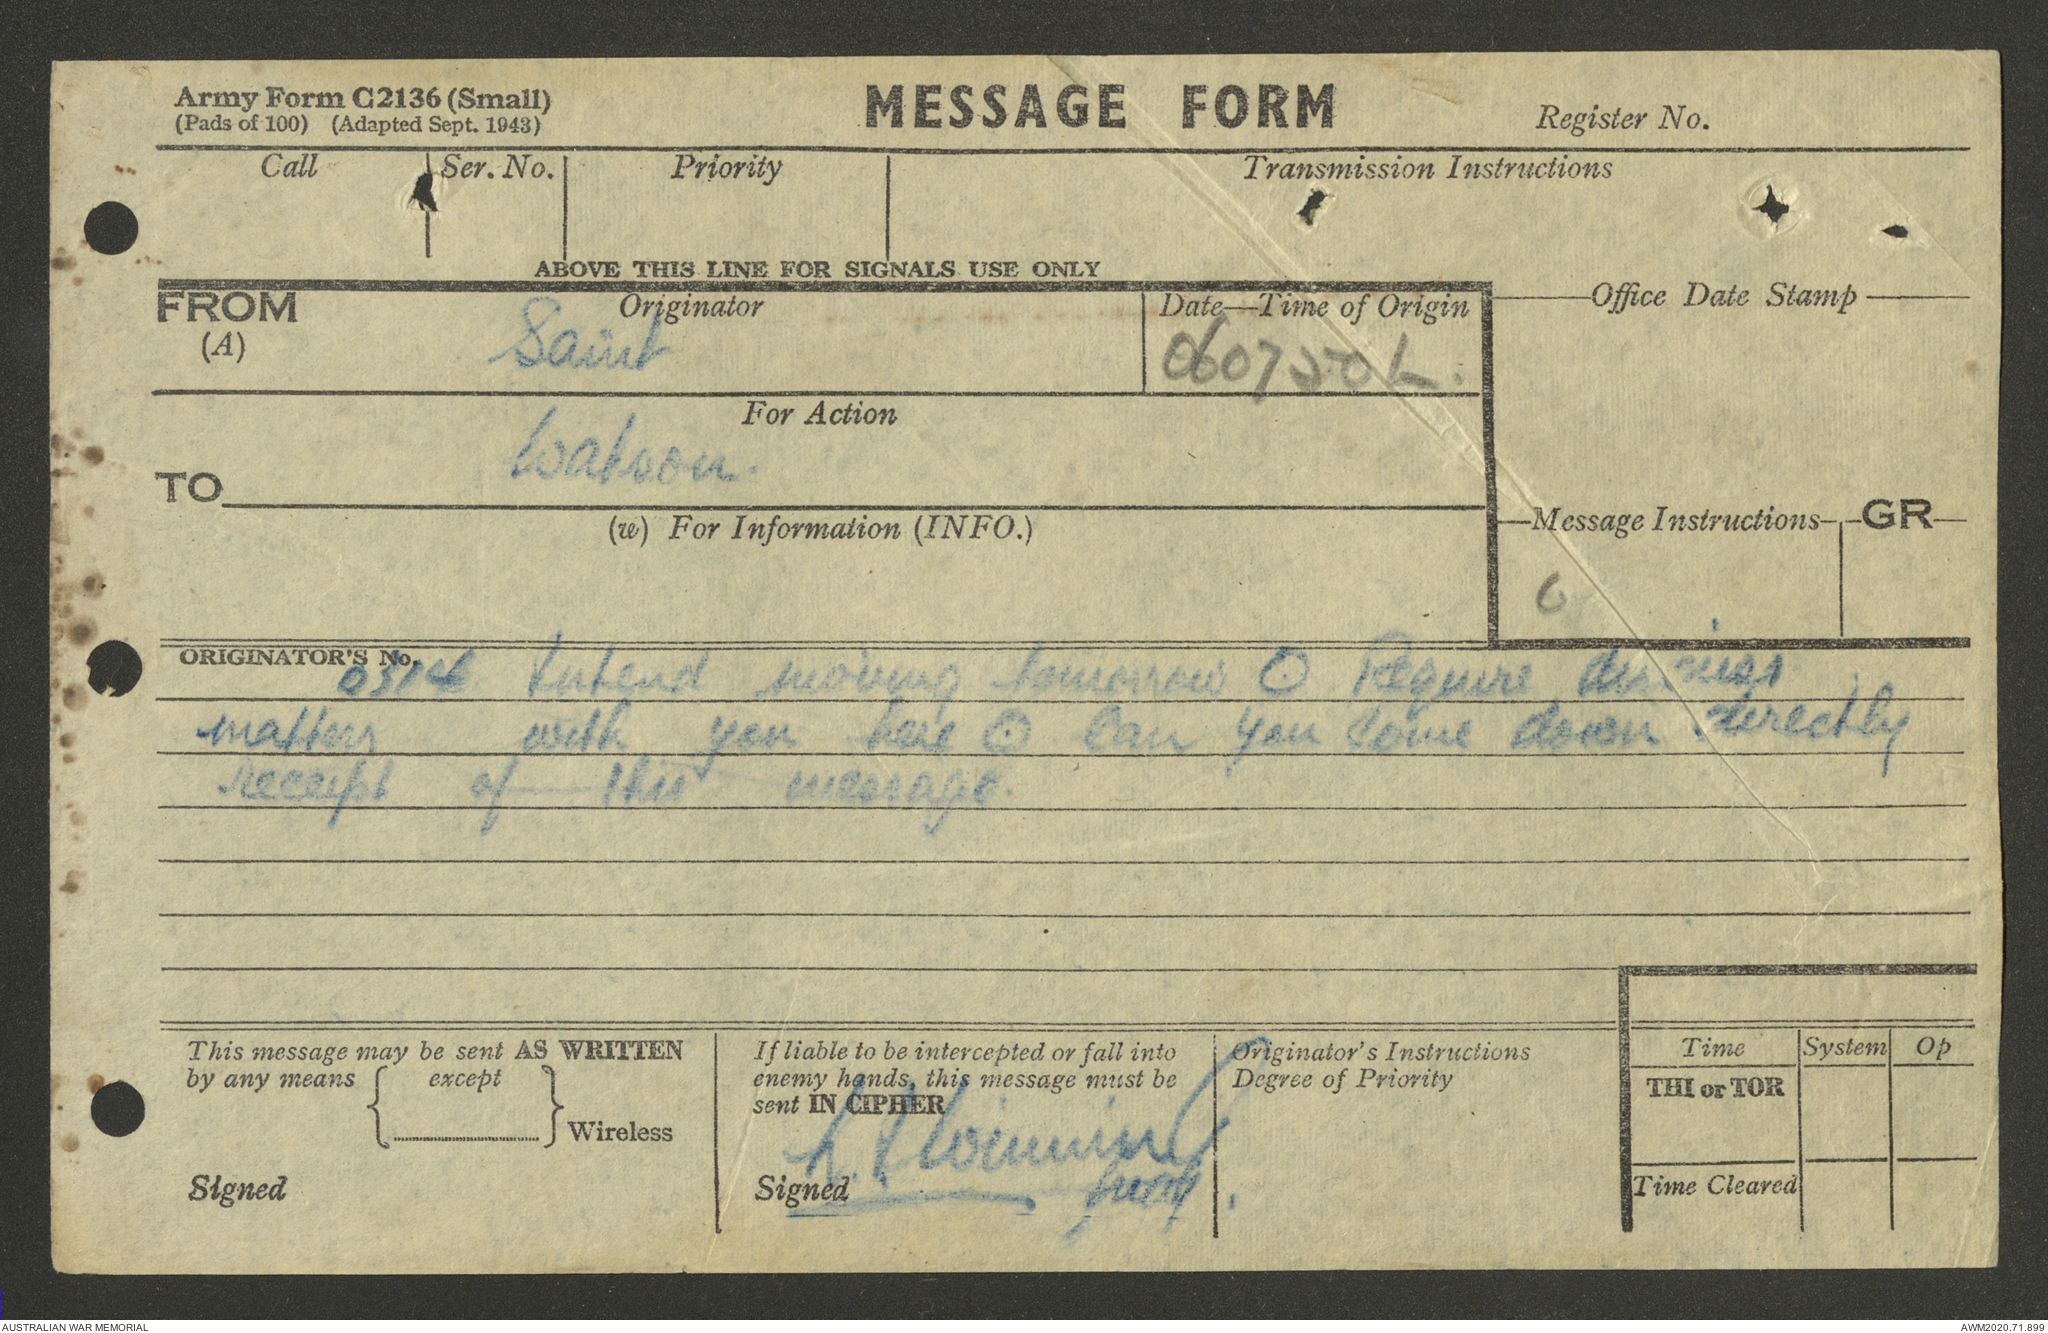 Army Form C2136 (Small)
(Pads of 100) (Adapted Sept. 1943)
MESSAGE FORM
Register No.
Call Ser. No. Priority Transmission Instructions
ABOVE THIS LINE FOR SIGNALS USE ONLY
FROM
(A)
Originator
Saint
Date—Time of Origin
060750L.
Office Date Stamp
For Action
Watson.
TO
(w) For Information (INFO.)
Message Instructions GR
ORIGINATOR'S No.
Intend moving tomorrow ⊙ Require discuss
matters with you here ⊙ Can you come down directly
receipt of this message.
This message may be sent AS WRITTEN
by any means { except } Wireless
Signed
If liable to be intercepted or fall into
enemy hands, this message must be
sent IN CIPHER
Signed
Originator's Instructions
Degree of Priority
Time System Op
THI or TOR
Time Cleared
AUSTRALIAN WAR MEMORIAL
AWM2020.71.899